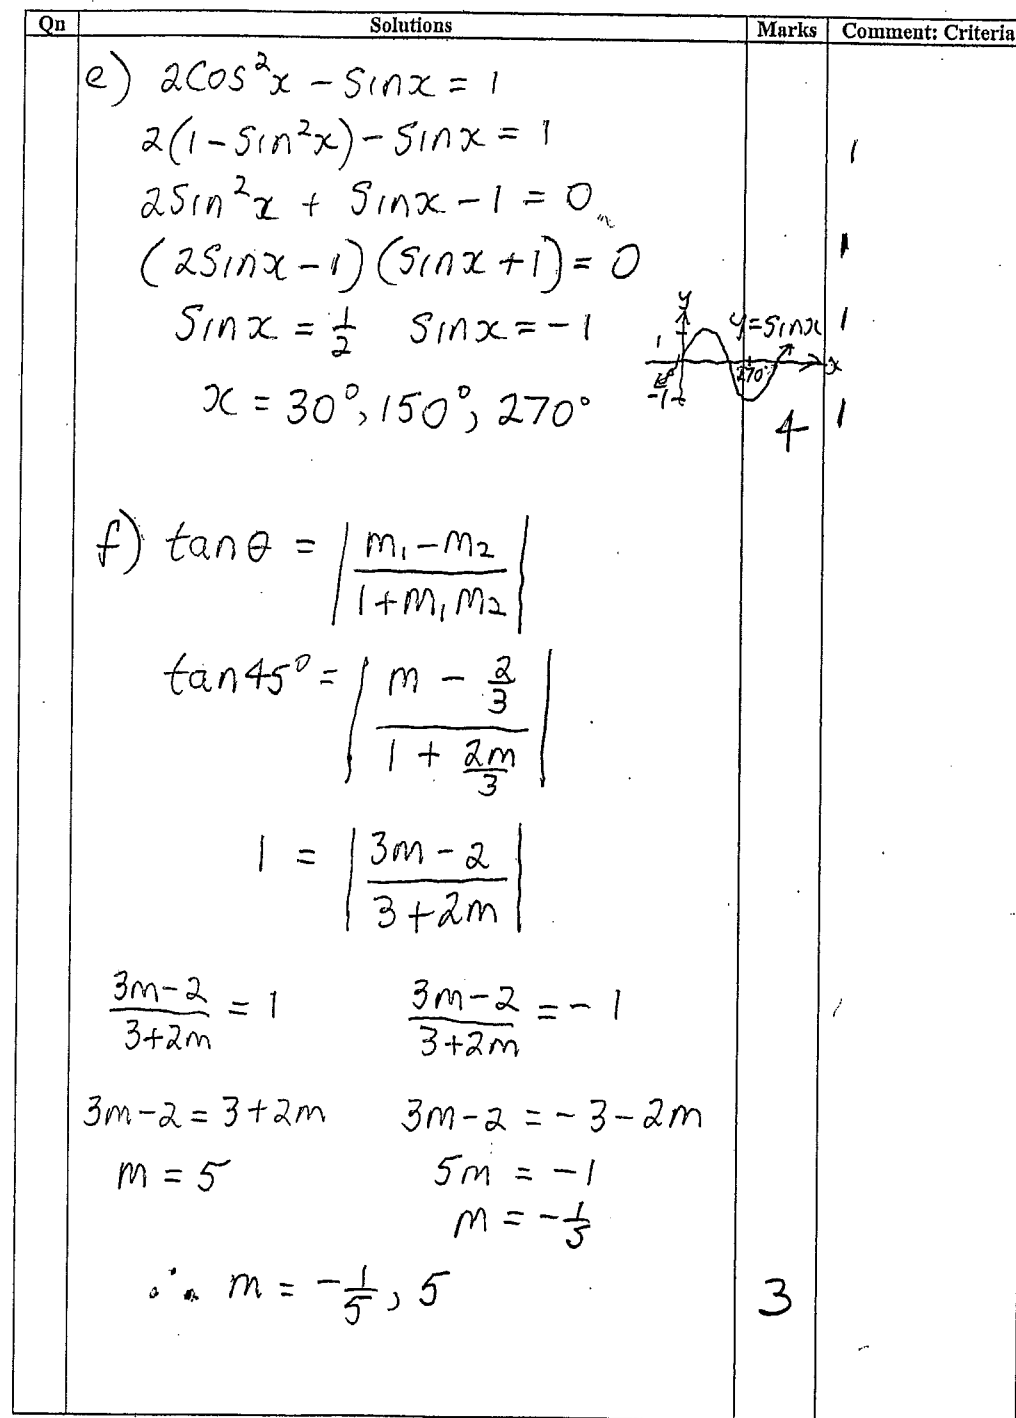 Qn Solutions Marks Comment: Criteria
e) 2cos²x − sinx = 1
2(1 − sin²x) − sinx = 1 1
2sin²x + sinx − 1 = 0
(2sinx − 1)(sinx + 1) = 0 1
sinx = 1/2 sinx = −1 1
y
y = sinx
1
x
270°
-1
x = 30°, 150°, 270° 4 1
f) tanθ = | (m₁ − m₂)/(1 + m₁m₂) |
tan45° = | (m − 2/3)/(1 + 2m/3) |
1 = | (3m − 2)/(3 + 2m) |
(3m − 2)/(3 + 2m) = 1 (3m − 2)/(3 + 2m) = − 1
3m − 2 = 3 + 2m 3m − 2 = − 3 − 2m
m = 5 5m = −1
m = −1/5
∴ m = −1/5, 5 3